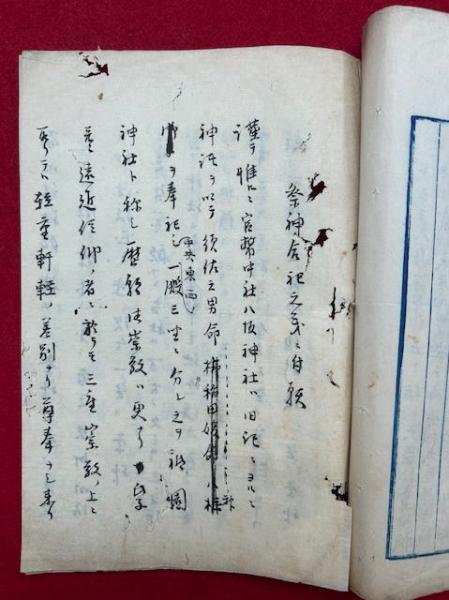 祭神合祀之義ニ付願
謹テ惟ルニ官幣中社八坂神社ハ旧記ニヨルニ
神託ヲ以テ須佐之男命櫛稲田姫命八柱
ヲ奉祀シ一殿三坐ニ分シ之ヲ祇園
中央東西
神社ト称シ歴朝御崇敬ハ更ナリ
遠近信仰ノ者ニ於テモ三座崇敬ノ上ニ
軽重軒輊ノ差別ナク尊奉シ来リ